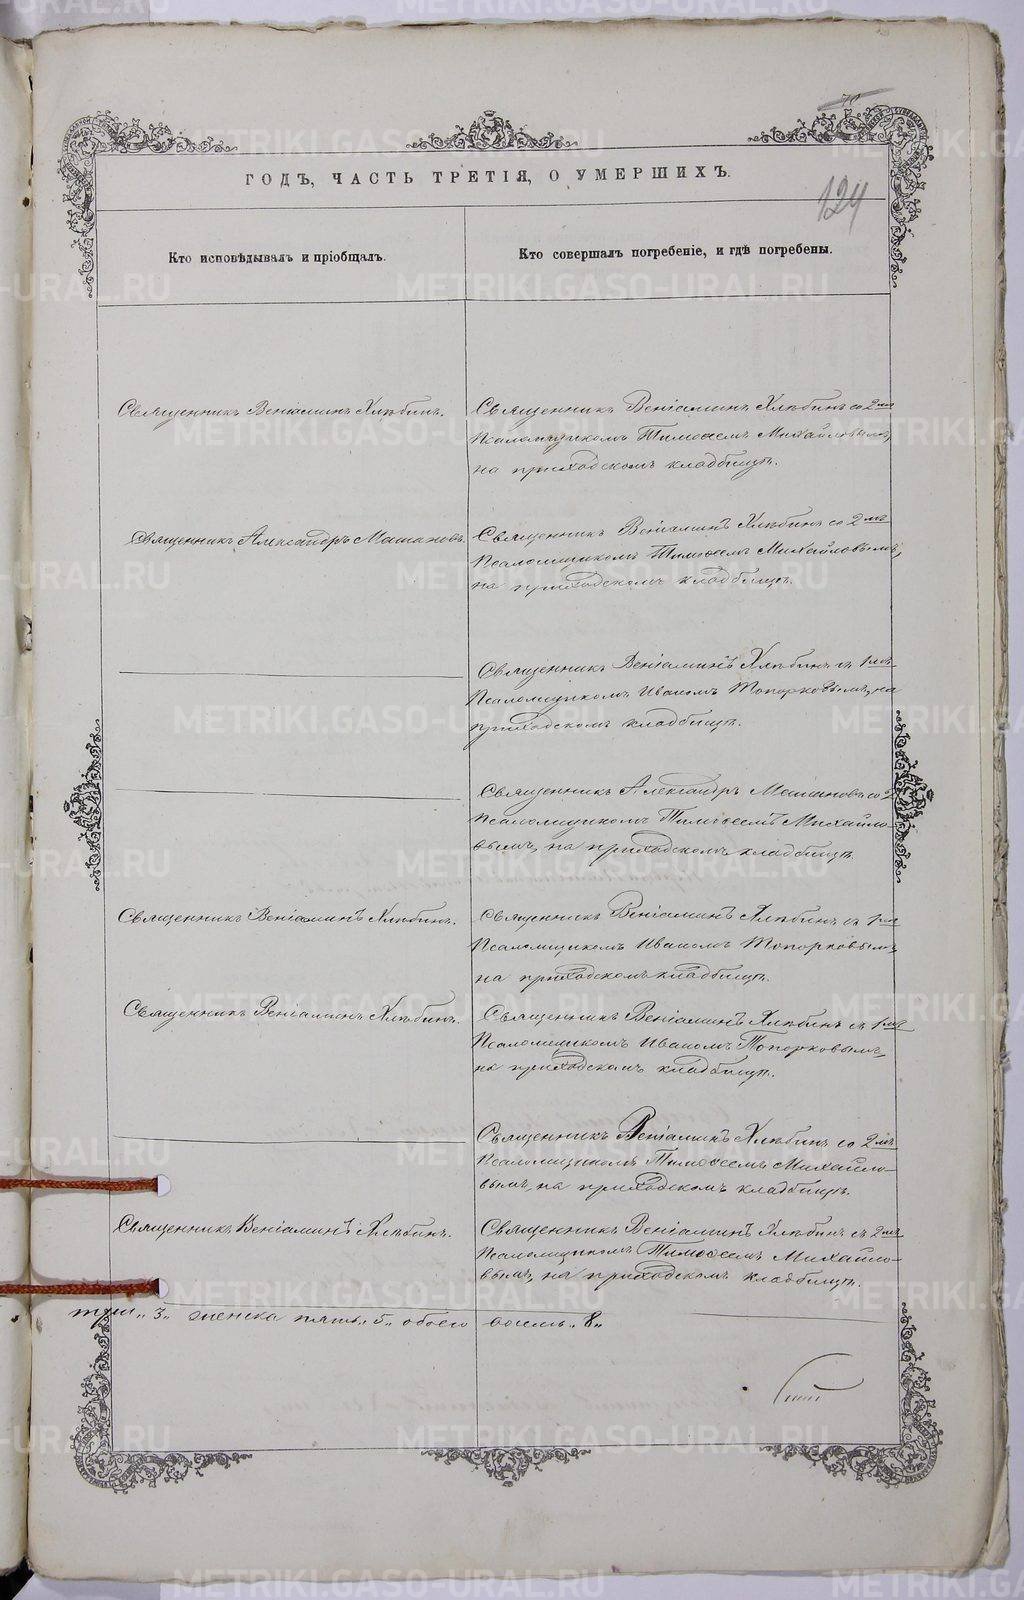 124
ГОДЪ, ЧАСТЬ ТРЕТІЯ, О УМЕРШИХЪ.
Кто исповѣдывалъ и пріобщалъ.
Кто совершалъ погребеніе, и гдѣ погребены.
Священникъ Веніаминъ Хлѣбинъ.
Священникъ Веніаминъ Хлѣбинъ со 2мъ
Псаломщикомъ Тимоѳеемъ Михайловымъ,
на приходскомъ кладбищѣ.
Священникъ Александръ Машановъ.
Священникъ Веніаминъ Хлѣбинъ со 2мъ
Псаломщикомъ Тимоѳеемъ Михайловымъ,
на приходскомъ кладбищѣ.
Священникъ Веніаминъ Хлѣбинъ съ 1мъ
Псаломщикомъ Иваномъ Топорковымъ, на
приходскомъ кладбищѣ.
Священникъ Александръ Машановъ со 2
Псаломщикомъ Тимоѳеемъ Михайло-
вымъ, на приходскомъ кладбищѣ.
Священникъ Веніаминъ Хлѣбинъ.
Священникъ Веніаминъ Хлѣбинъ съ 1мъ
Псаломщикомъ Иваномъ Топорковымъ,
на приходскомъ кладбищѣ.
Священникъ Веніаминъ Хлѣбинъ.
Священникъ Веніаминъ Хлѣбинъ съ 1мъ
Псаломщикомъ Иваномъ Топорковымъ,
на приходскомъ кладбищѣ.
Священникъ Веніаминъ Хлѣбинъ со 2мъ
Псаломщикомъ Тимоѳеемъ Михайло-
вымъ, на приходскомъ кладбищѣ.
Священникъ Веніаминъ Хлѣбинъ.
Священникъ Веніаминъ Хлѣбинъ съ 2мъ
Псаломщикомъ Тимоѳеемъ Михайло-
вымъ, на приходскомъ кладбищѣ.
три „3„ женска пять „5„ обоего восемь „8„
METRIKI.GASO-URAL.RU